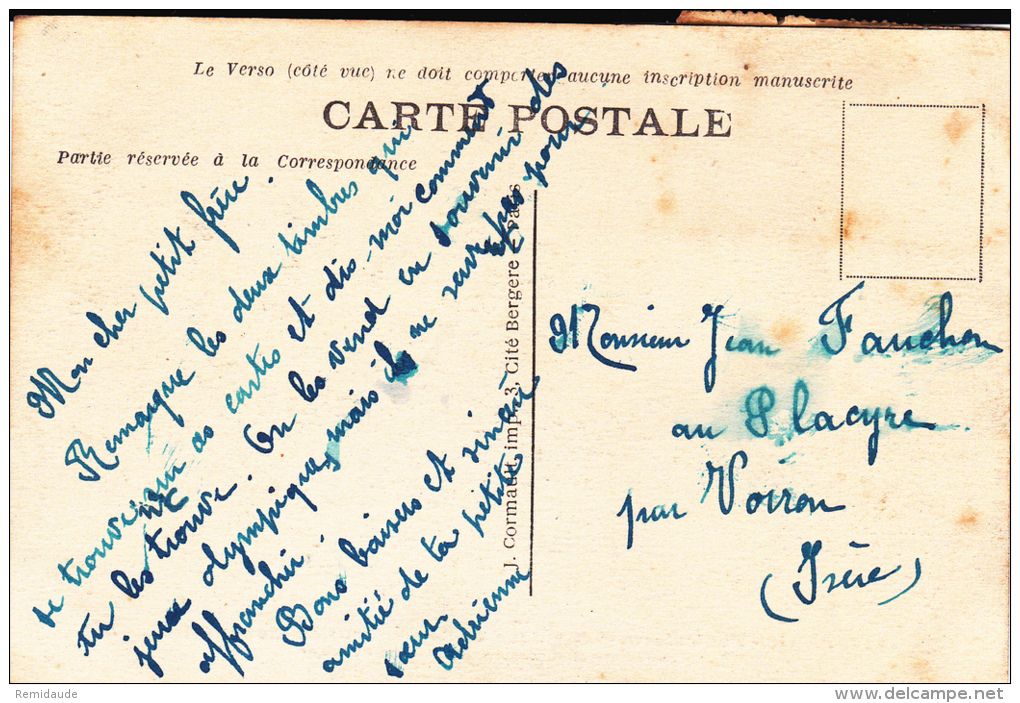 Le Verso (côté vue) ne doit comporter aucune inscription manuscrite
CARTE POSTALE
Partie réservée à la Correspondance
Mon cher petit frère.
Remarque les deux timbres qui
se trouvent cartes et dis-moi comment
tu les trouve. On les vend en souvenir des
jeux olympiques, mais ils ne servent pas pour
affranchir.
Bons baisers et sincère
amitié de ta petite
sœur.
Adrienne
J. Cormault, imp., 3, Cité Bergère - Paris
Monsieur Jean Fauchon
au Placyre
par Voiron
(Isère)
Remidaude
www.delcampe.net